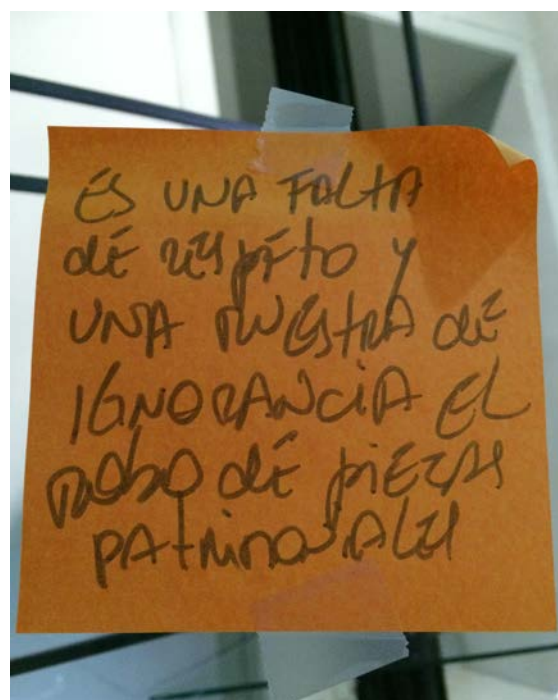 ES UNA FALTA
DE RESPETO Y
UNA MUESTRA DE
IGNORANCIA EL
ROBO DE PIEZAS
PATRIMONIALES